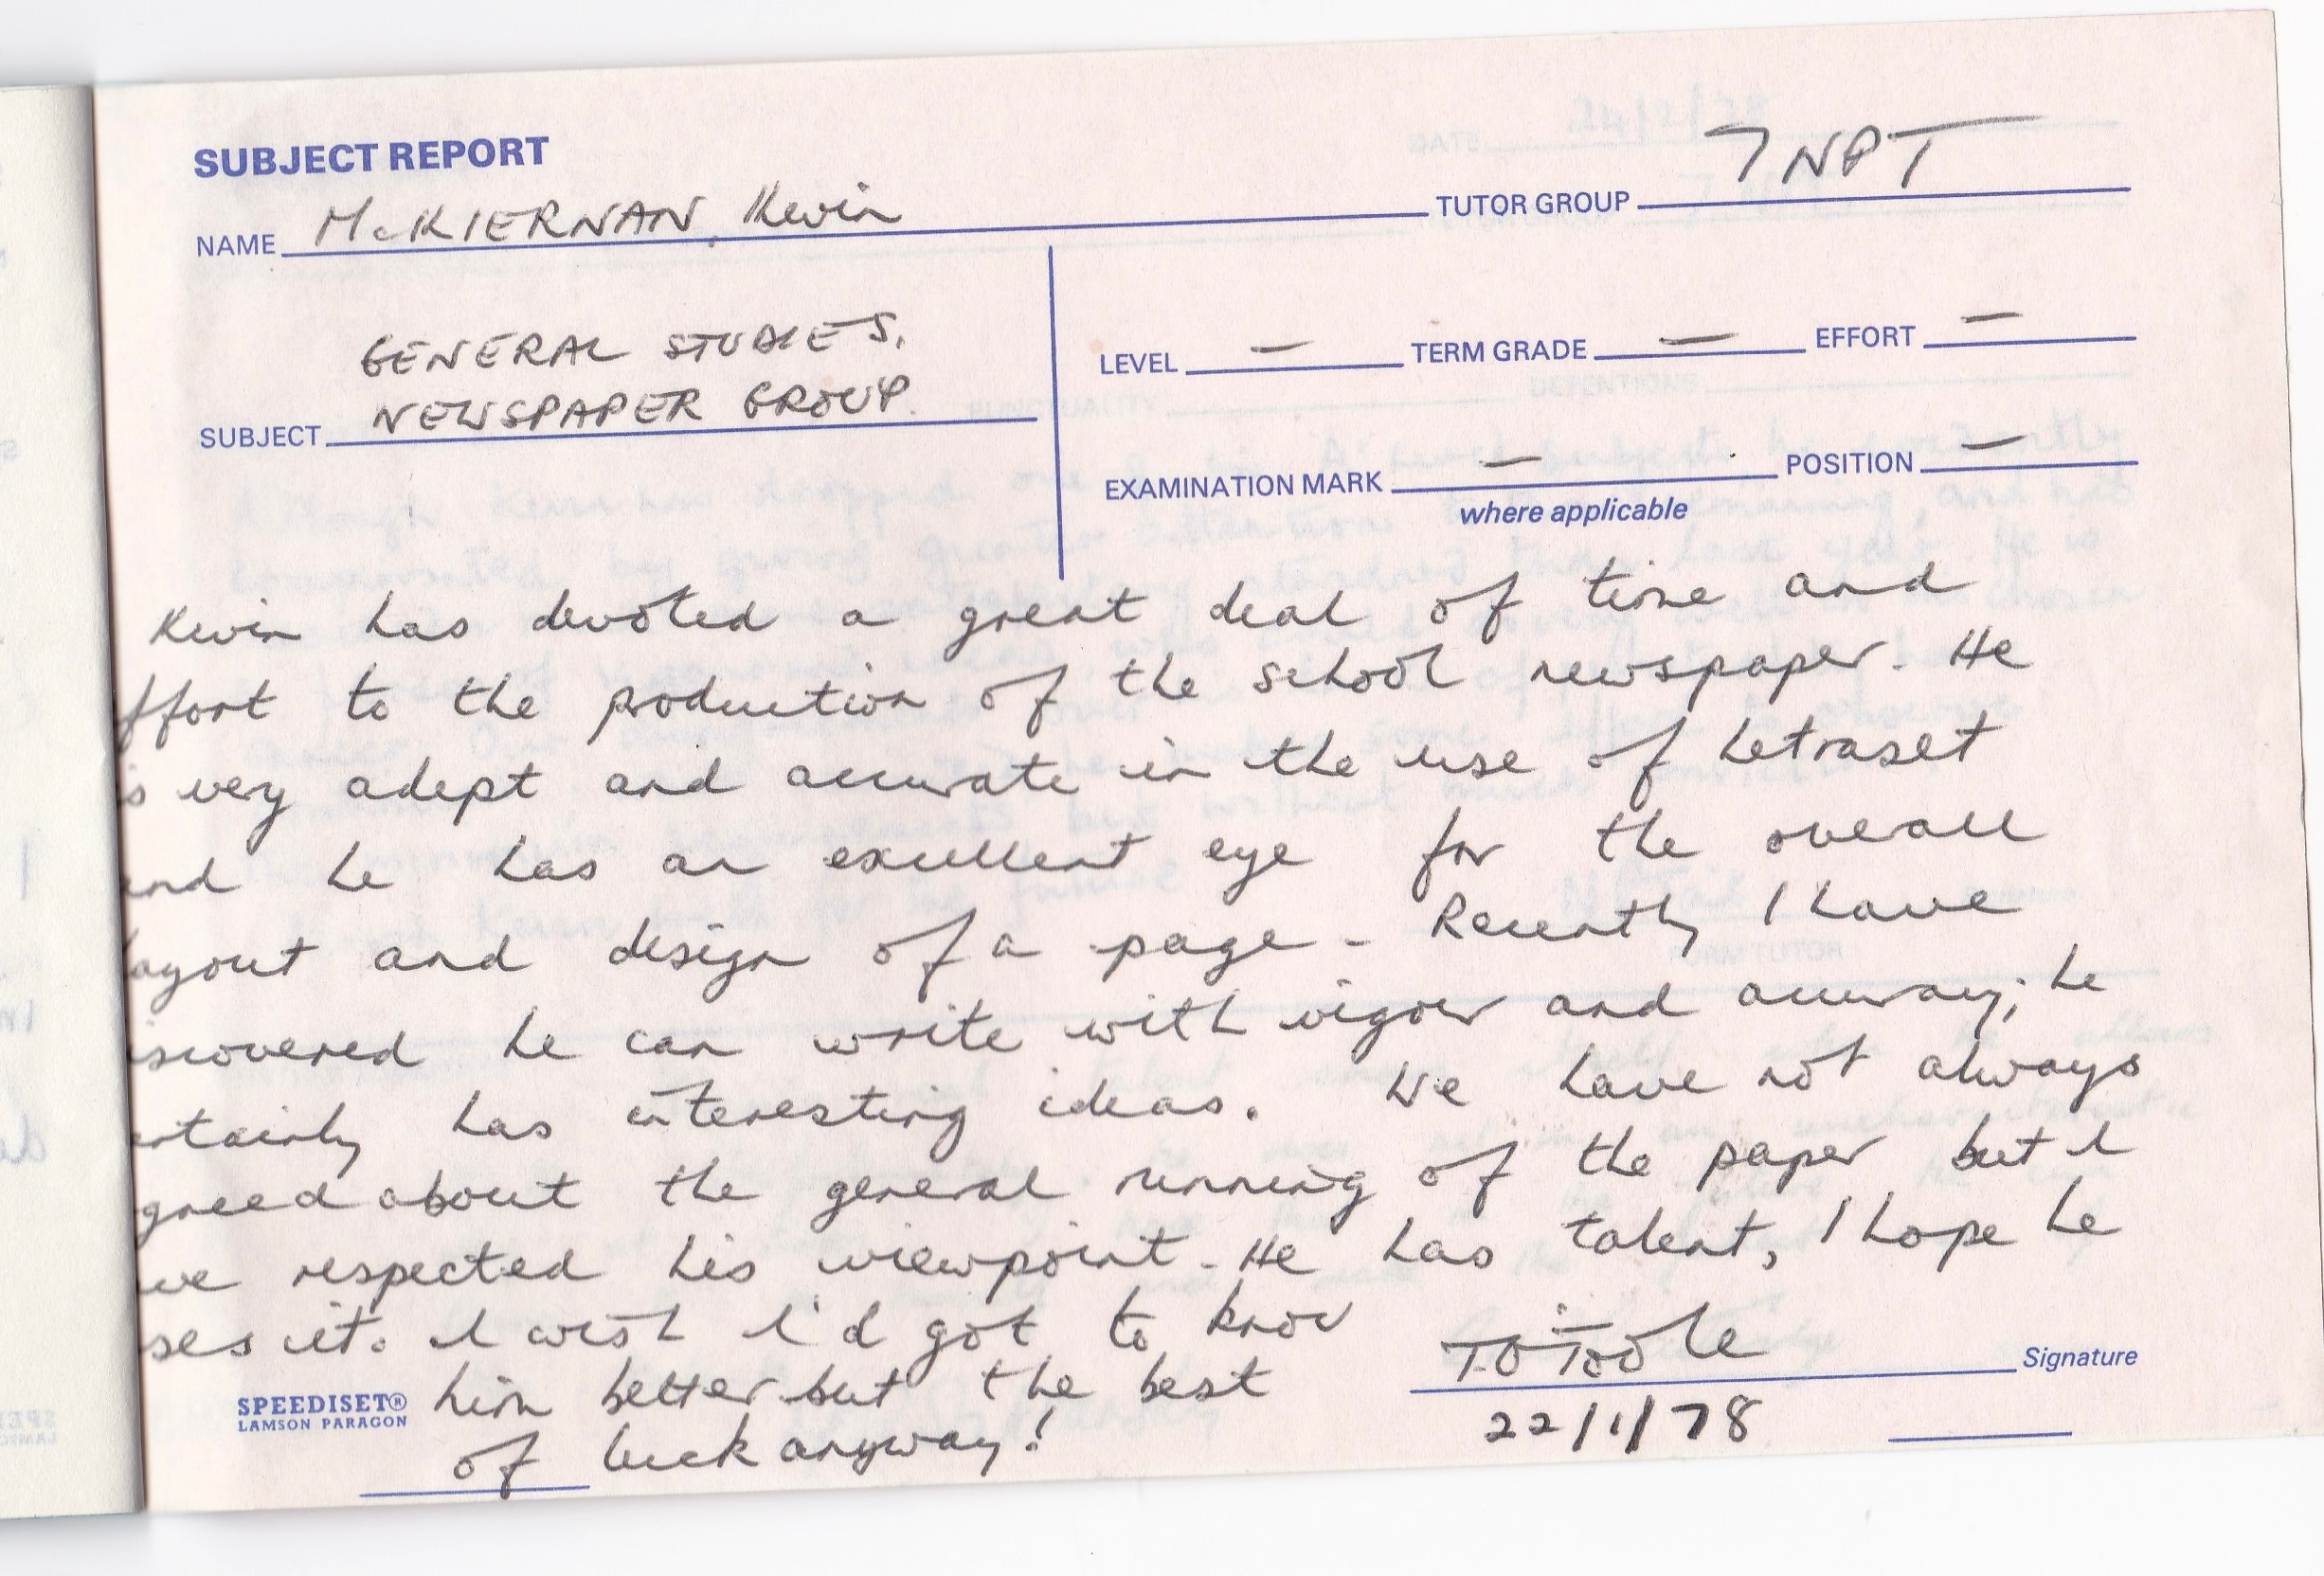 SUBJECT REPORT
NAME McKIERNAN, Kevin TUTOR GROUP 7 NPT
GENERAL STUDIES.
NEWSPAPER GROUP.
SUBJECT
LEVEL — TERM GRADE — EFFORT —
EXAMINATION MARK — POSITION —
where applicable
Kevin has devoted a great deal of time and
ffort to the production of the school newspaper. He
s very adept and accurate in the use of Letraset
and he has an excellent eye for the overall
layout and design of a page. Recently I have
iscovered he can write with vigour and accuracy; he
ertainly has interesting ideas. We have not always
greed about the general running of the paper but I
ve respected his viewpoint. He has talent, I hope he
ses it. I wish I'd got to know
him better but the best
of luck anyway!
T O'Toole Signature
22/1/78
SPEEDISET®
LAMSON PARAGON